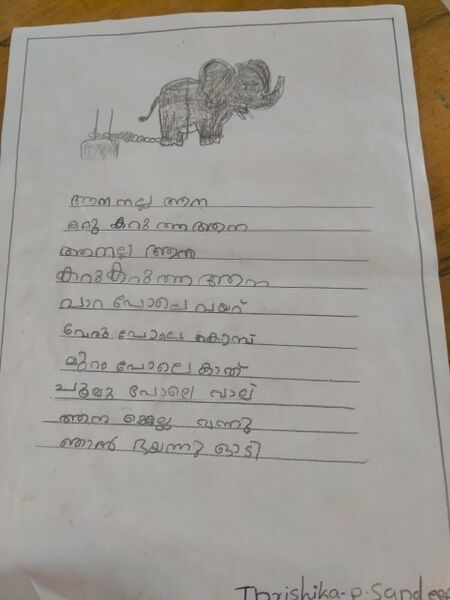 ആനനല്ല ആന
കറു കറു ത്ത ആന
ആനല്ല ആന
കറുകറുത്ത ആന
പാറ പോലെ വയറ്
വേരു പോലെ കൊമ്പ്
മുറം പോലെ കാത്
ചൂലു പോലെ വാല്
ആന വന്നു
ഞാൻ ഭയന്നു ഓടി
Thrishika-P.Sandeep